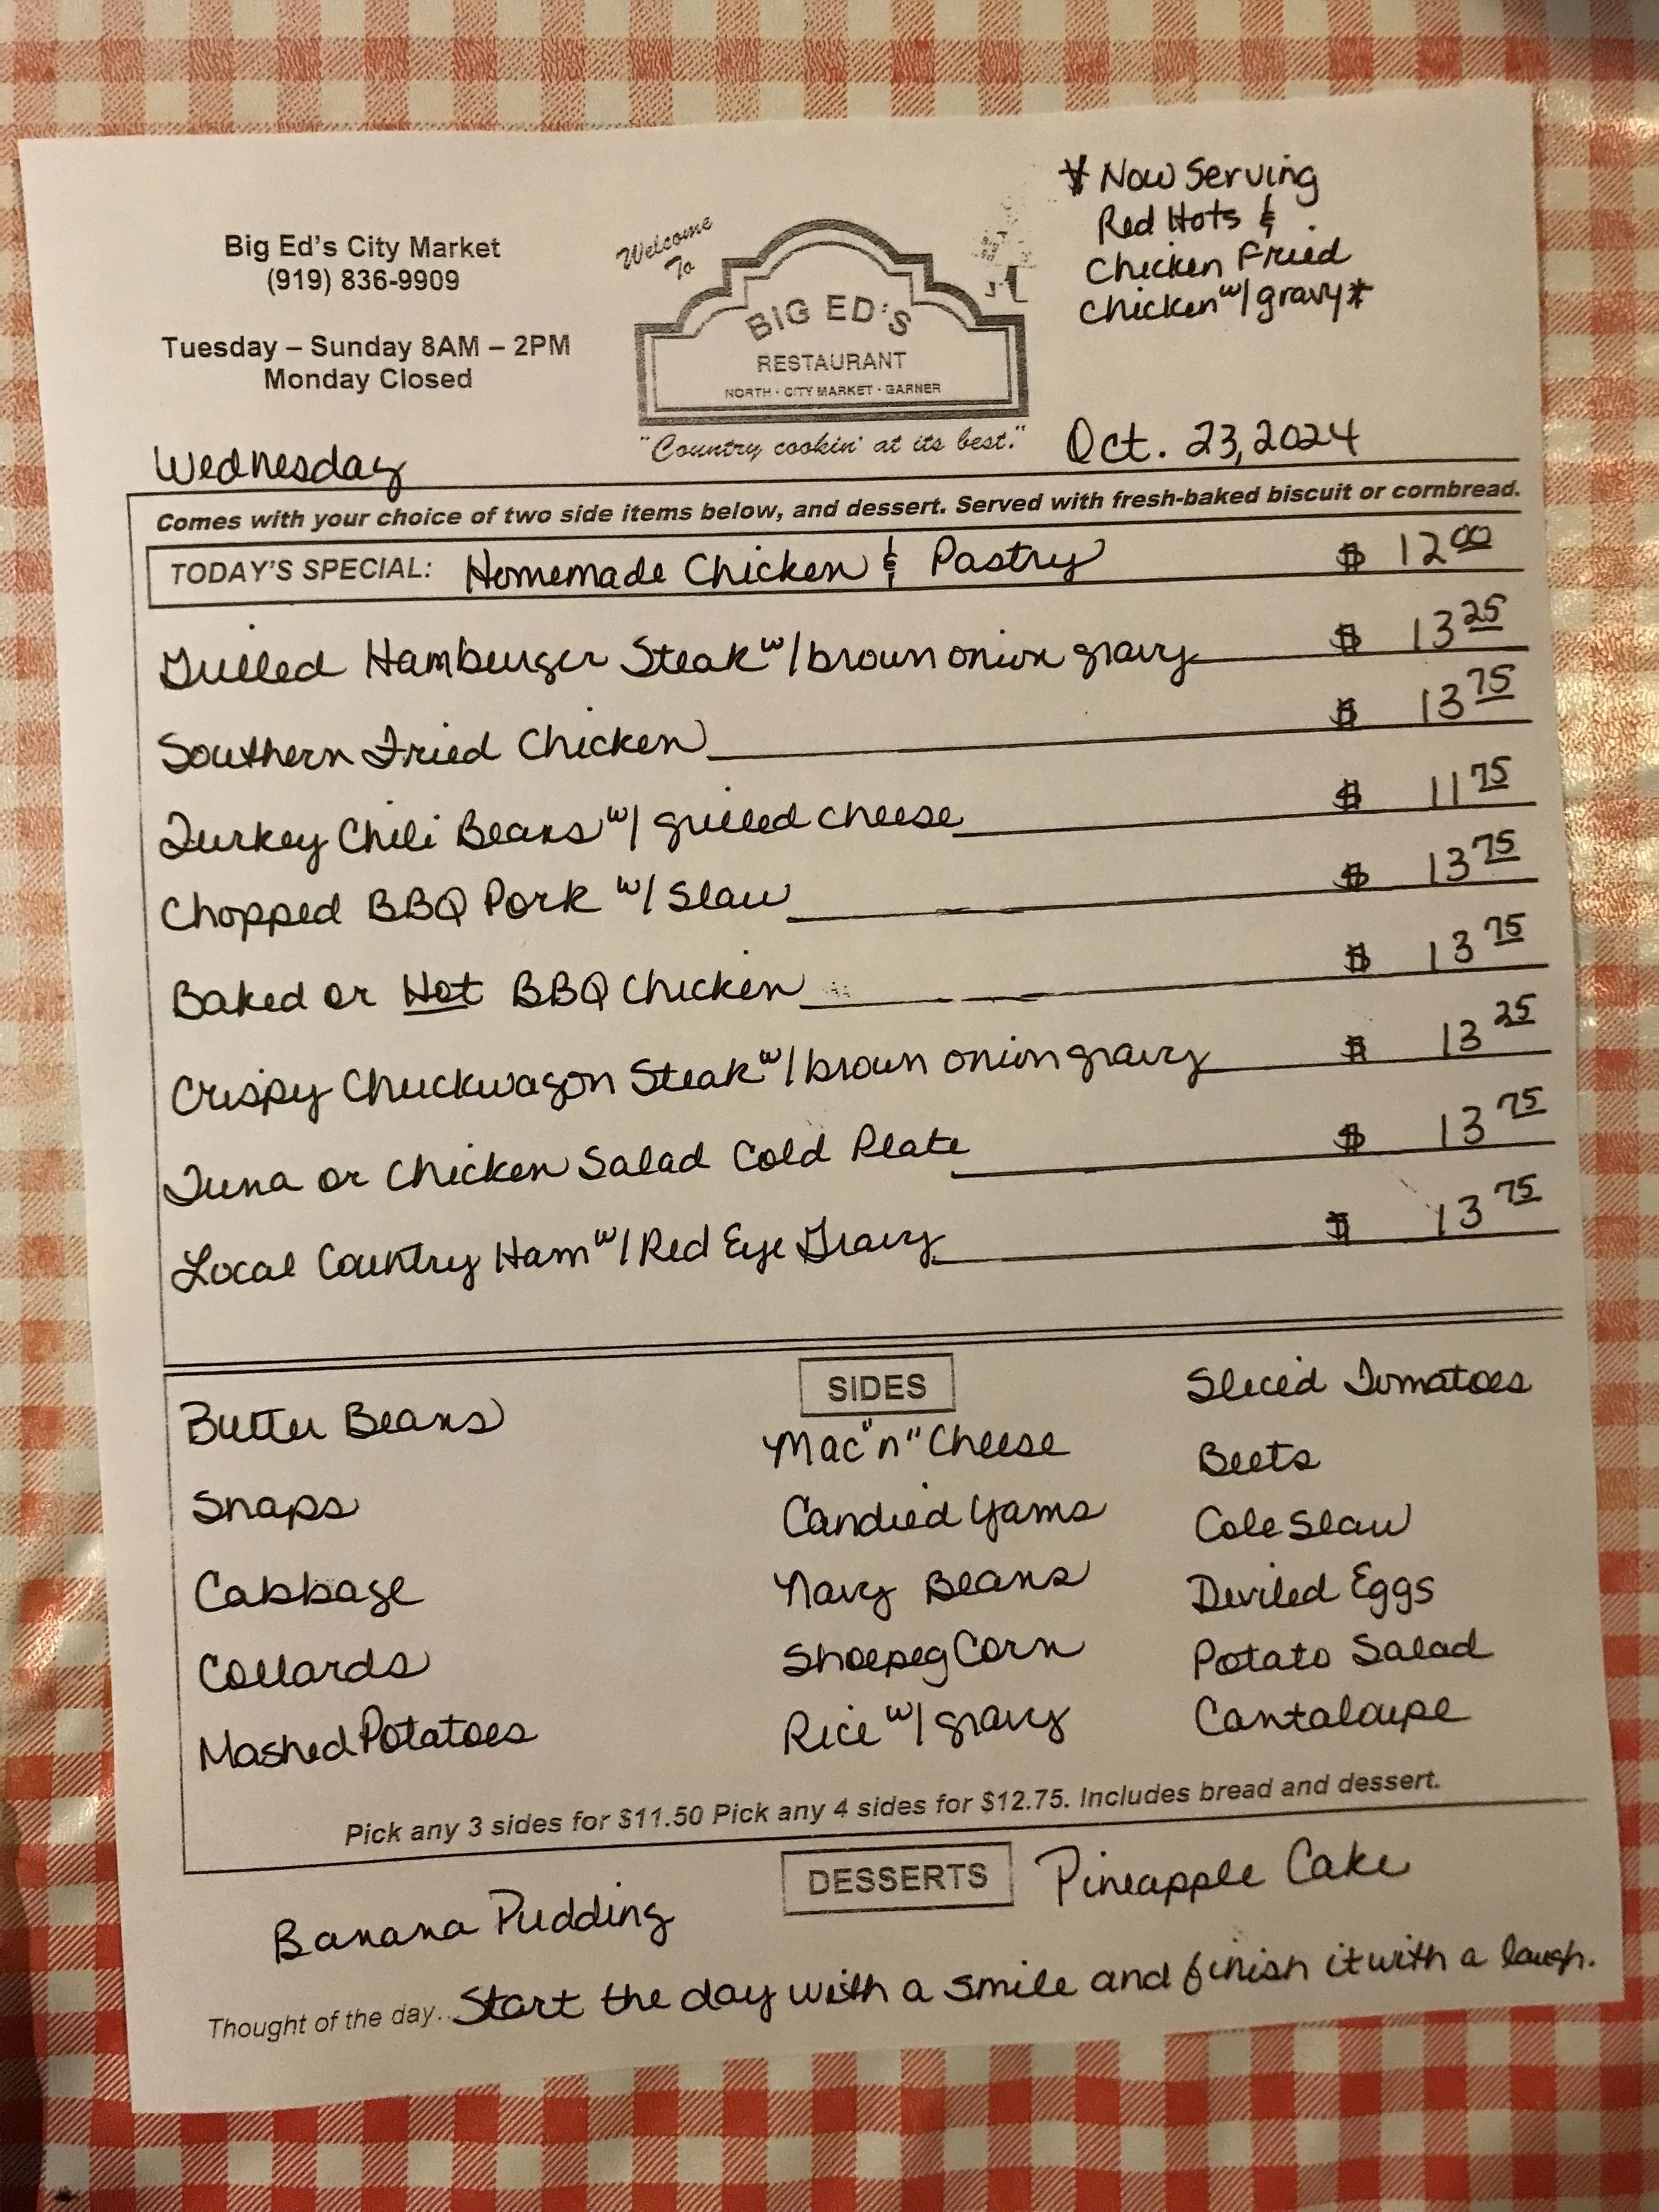 * Now Serving
Red Hots &
Chicken Fried
Chicken w/ gravy *
Big Ed's City Market
(919) 836-9909
Tuesday – Sunday 8AM – 2PM
Monday Closed
Welcome
To
BIG ED'S
RESTAURANT
NORTH · CITY MARKET · GARNER
"Country cookin' at its best."
Wednesday Oct. 23, 2024
Comes with your choice of two side items below, and dessert. Served with fresh-baked biscuit or cornbread.
TODAY'S SPECIAL: Homemade Chicken & Pastry $ 12 00
Grilled Hamburger Steak w/ brown onion gravy $ 13 25
Southern Fried Chicken $ 13 75
Turkey Chili Beans w/ grilled cheese $ 11 75
Chopped BBQ Pork w/ Slaw $ 13 75
Baked or Hot BBQ Chicken $ 13 75
Crispy Chuckwagon Steak w/ brown onion gravy $ 13 25
Tuna or Chicken Salad Cold Plate $ 13 75
Local Country Ham w/ Red Eye Gravy $ 13 75
SIDES
Butter Beans
Snaps
Cabbage
Collards
Mashed Potatoes
Mac "n" Cheese
Candied Yams
Navy Beans
Shoepeg Corn
Rice w/ gravy
Sliced Tomatoes
Beets
Cole Slaw
Deviled Eggs
Potato Salad
Cantaloupe
Pick any 3 sides for $11.50 Pick any 4 sides for $12.75. Includes bread and dessert.
DESSERTS
Banana Pudding
Pineapple Cake
Thought of the day... Start the day with a smile and finish it with a laugh.